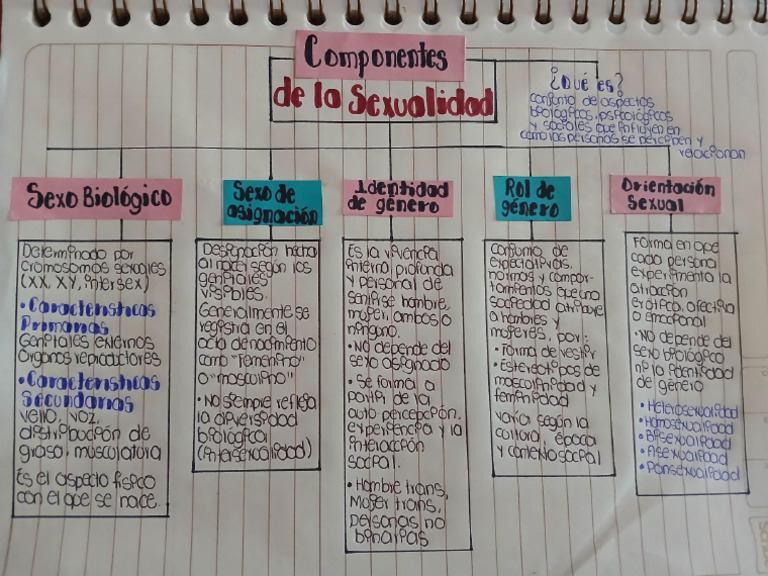 Componentes
de la Sexualidad
¿Qué es?
conjunto de aspectos
biológicos, psicológicos
y sociales que influyen en
como las personas se perciben y
relacionan
Sexo Biológico
Determinado por
cromosomas sexuales
(XX, XY, intersex)
• Características
Primarias
Genitales externos
Organos reproductores
• Características
Secundarias
vello, voz,
distribución de
grasa, musculatura
Es el aspecto físico
con el que se nace.
Sexo de
asignación
Designación hecha
al nacer según los
genitales
visibles.
Generalmente se
registra en el
acta de nacimiento
como "femenino"
o "masculino"
• No siempre refleja
la diversidad
biológica
(intersexualidad)
Identidad
de género
Es la vivencia
interna, profunda
y personal de
sentirse hombre,
mujer, ambos o
ninguno.
• No depende del
sexo asignado
• Se forma a
partir de la
auto percepción,
experiencia y la
interacción
social.
• Hombre trans,
Mujer trans,
personas no
binarias
Rol de
género
Conjunto de
expectativas,
normas y compor-
tamientos que una
sociedad atribuye
a hombres y
mujeres, por:
• Forma de vestir
• Estereotipos de
masculinidad y
feminidad
varía según la
cultura, época
y contexto social
Orientación
Sexual
Forma en que
cada persona
experimenta la
atracción
erótica, afectiva
o emocional
• No depende del
sexo biológico
ni la identidad
de género
• Heterosexualidad
• Homosexualidad
• Bisexualidad
• Asexualidad
• Pansexualidad